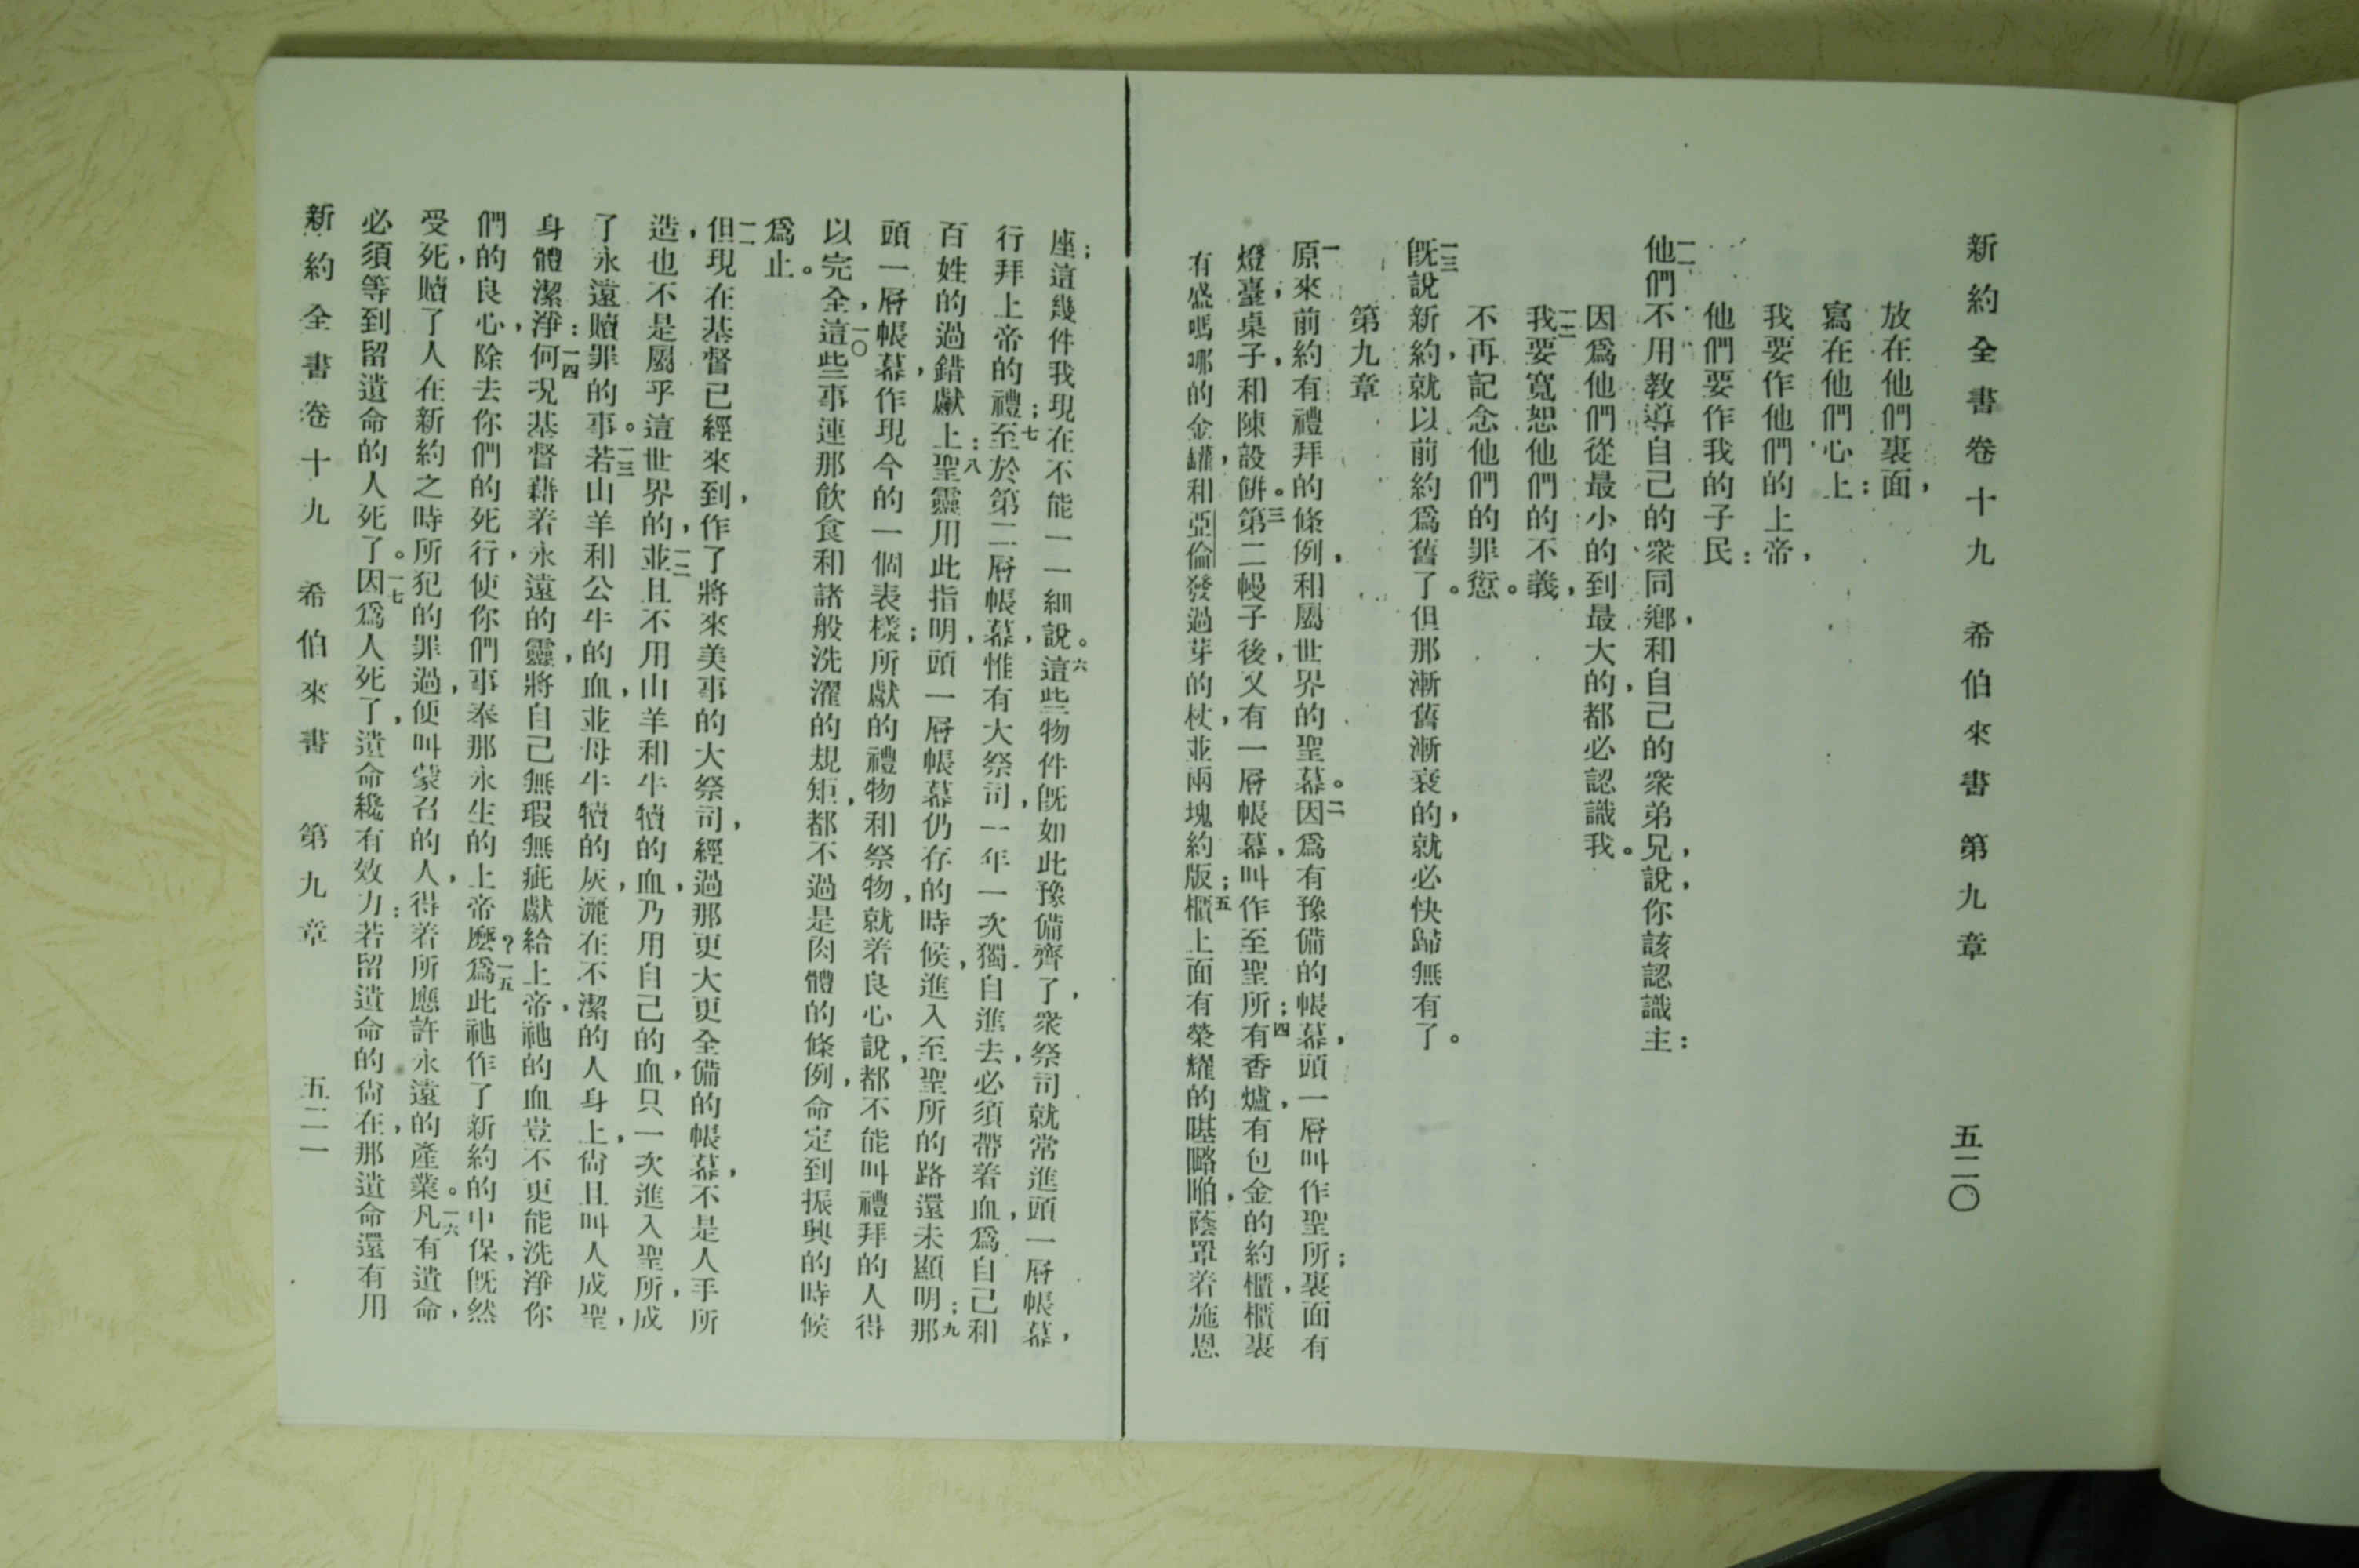 新約全書卷十九　希伯來書　第九章　五二〇
放在他們裏面，
寫在他們心上；
我要作他們的上帝，
他們要作我的子民：
一一他們不用教導自己的衆同鄕，和自己的衆弟兄，說，你該認識主：
因爲他們從最小的到最大的，都必認識我。
一二我要寬恕他們的不義，
不再記念他們的罪愆。
一三旣說新約，就以前約爲舊了。但那漸舊漸衰的，就必快歸無有了。
第九章
一原來前約有禮拜的條例，和屬世界的聖幕。二因爲有豫備的帳幕，頭一層叫作聖所；裏面有
燈臺，桌子，和陳設餅。三第二幔子後，又有一層帳幕，叫作至聖所；四有香爐，有包金的約櫃，櫃裏
有盛嗎哪的金罐，和亞倫發過芽的杖，並兩塊約版；五櫃上面有榮耀的𠹌𡀔啪，蔭罩着施恩
座；這幾件我現在不能一一細說。六這些物件旣如此豫備齊了，衆祭司就常進頭一層帳幕，
行拜上帝的禮；七至於第二層帳幕，惟有大祭司，一年一次獨自進去，必須帶着血，爲自己和
百姓的過錯獻上：八聖靈用此指明，頭一層帳幕仍存的時候，進入至聖所的路還未顯明；九那
頭一層帳幕，作現今的一個表樣；所獻的禮物和祭物，就着良心說，都不能叫禮拜的人得
以完全，一〇這些事連那飲食和諸般洗濯的規矩，都不過是肉體的條例，命定到振興的時候
爲止。
一一但現在基督已經來到，作了將來美事的大祭司，經過那更大更全備的帳幕，不是人手所
造，也不是屬乎這世界的，一二並且不用山羊和牛犢的血，乃用自己的血，只一次進入聖所，成
了永遠贖罪的事。一三若山羊和公牛的血，並母牛犢的灰，灑在不潔的人身上，尙且叫人成聖，
身體潔淨：一四何况基督藉着永遠的靈，將自己無瑕無疵獻給上帝，祂的血豈不更能洗淨你
們的良心，除去你們的死行，使你們事奉那永生的上帝麽？一五爲此祂作了新約的中保，旣然
受死，贖了人在新約之時所犯的罪過，便叫蒙召的人，得着所應許永遠的產業。一六凡有遺命，
必須等到留遺命的人死了。一七因爲人死了，遺命纔有效力：若留遺命的尙在，那遺命還有用
新約全書卷十九　希伯來書　第九章　五二一